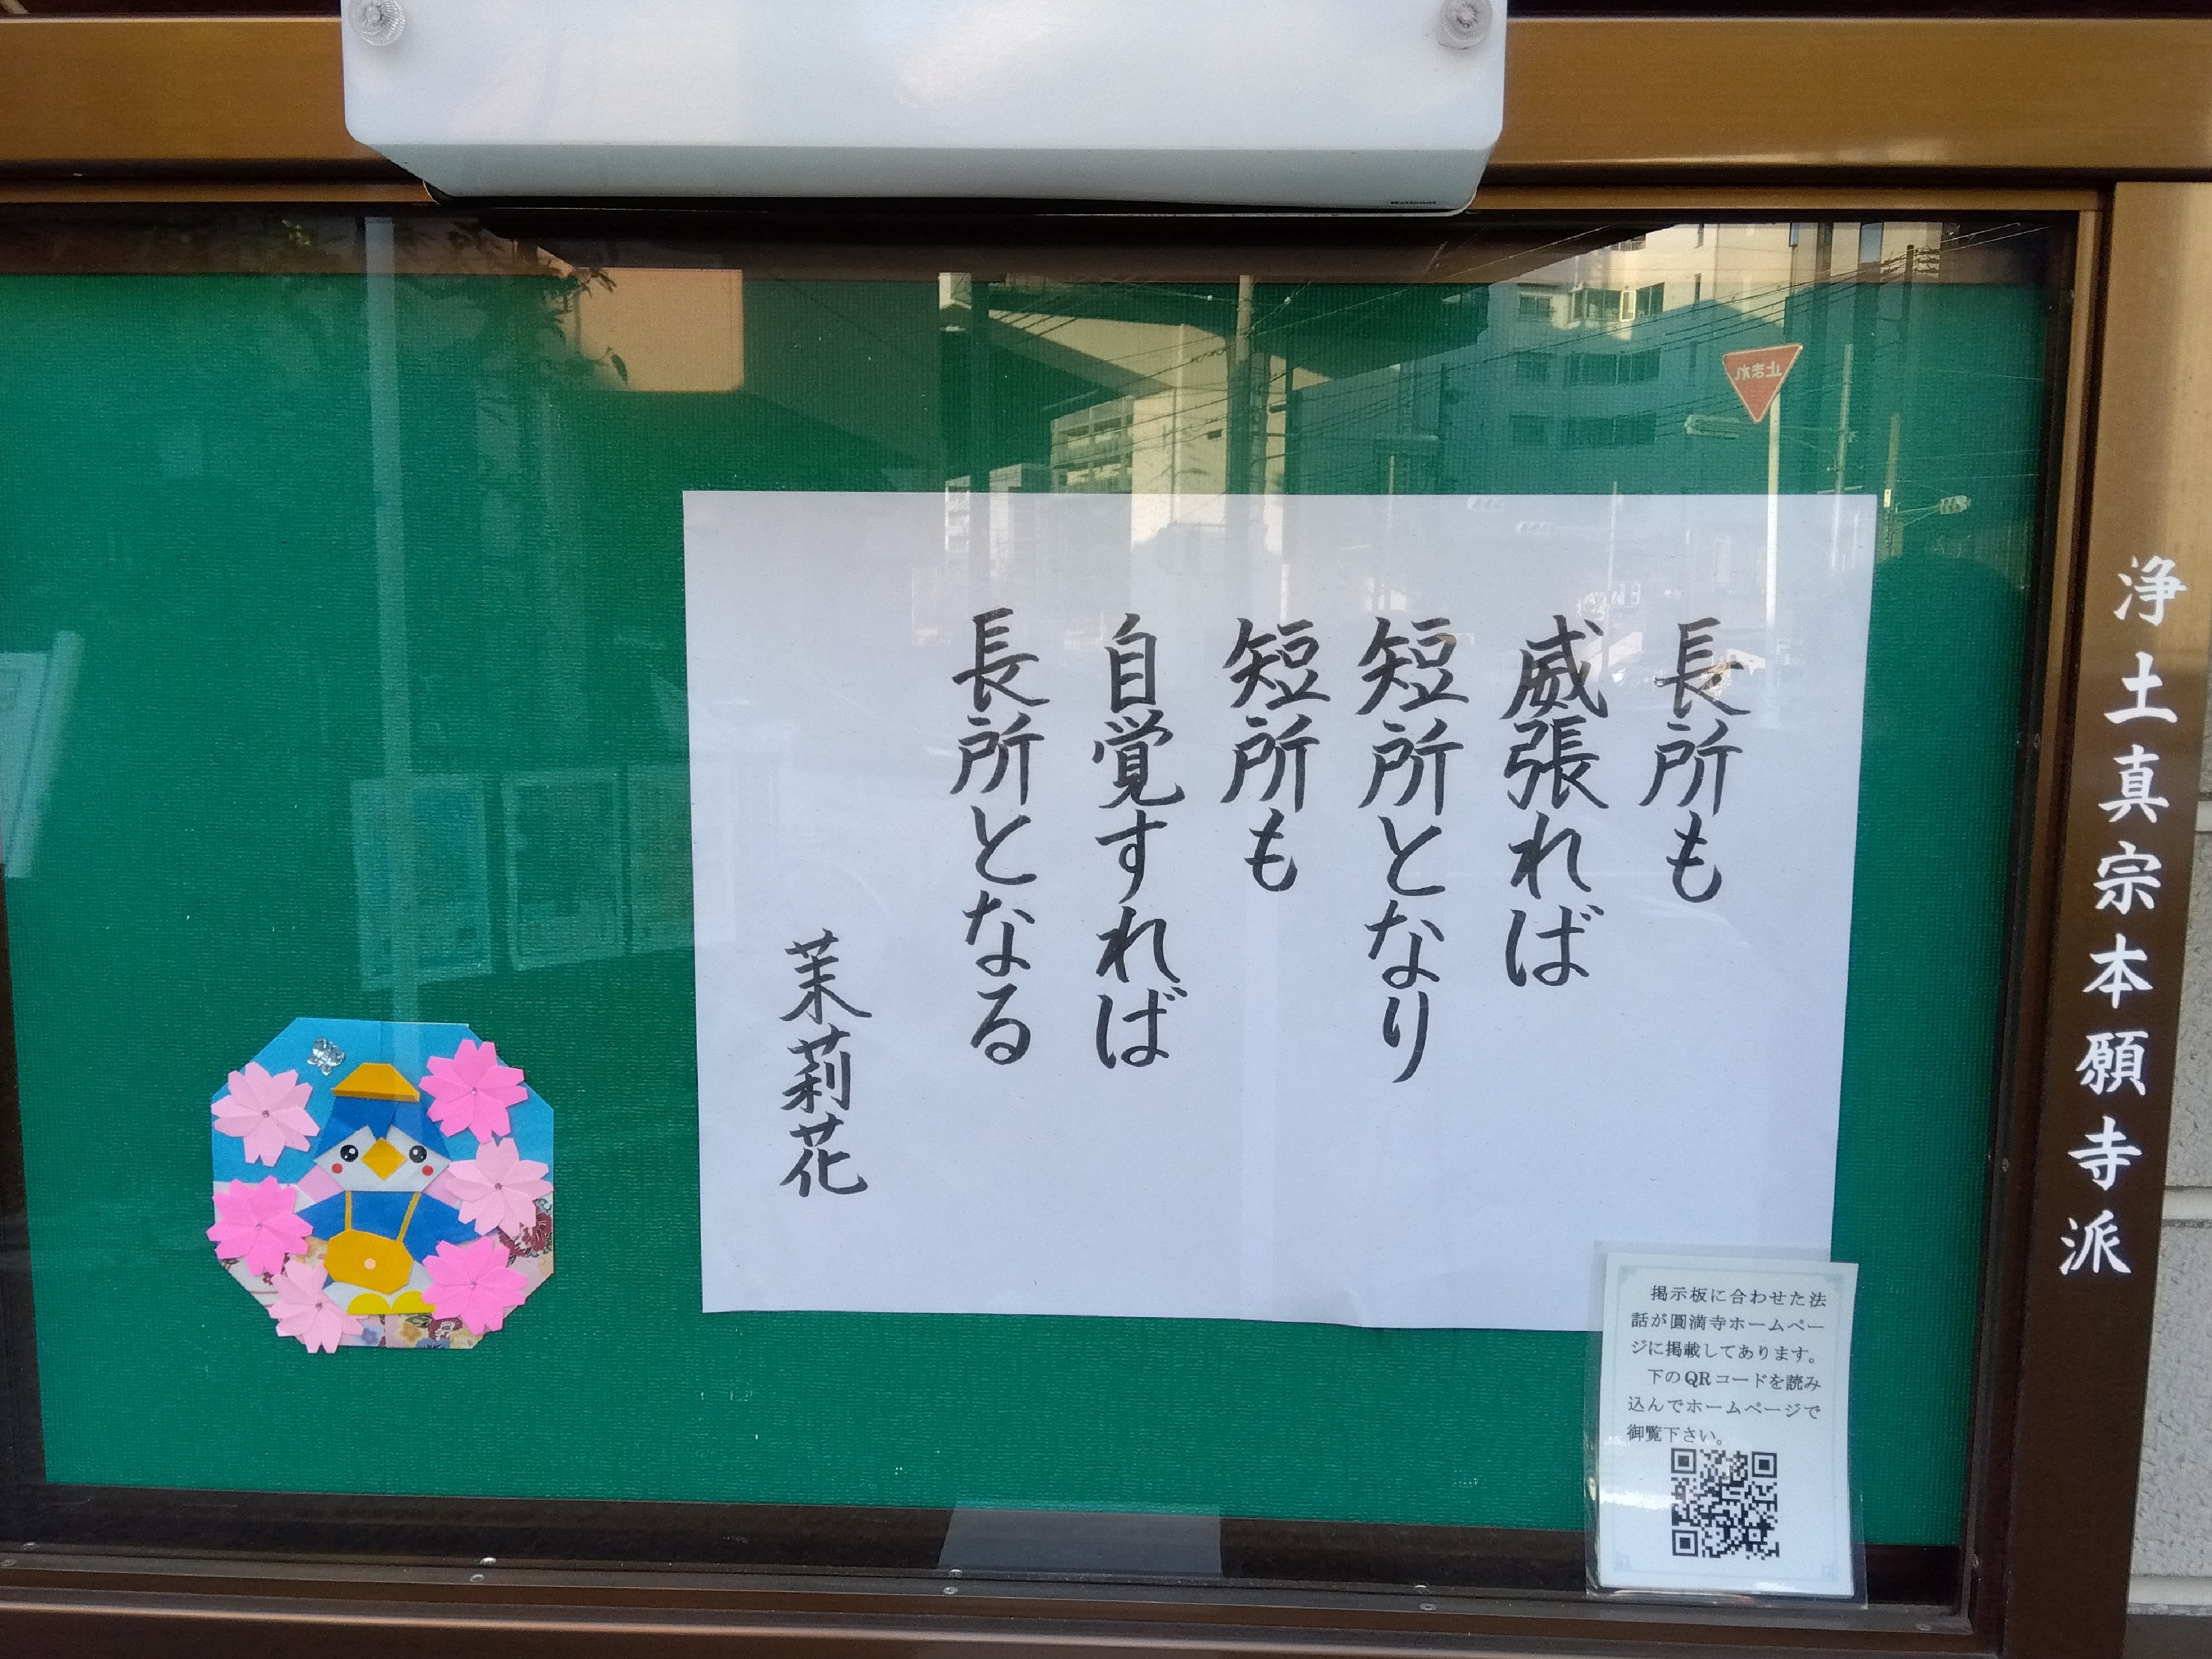 National
止まれ
長所も
威張れば
短所となり
短所も
自覚すれば
長所となる
茉莉花
浄土真宗本願寺派
掲示板に合わせた法
話が圓満寺ホームペー
ジに掲載してあります。
下のQRコードを読み
込んでホームページで
御覧下さい。